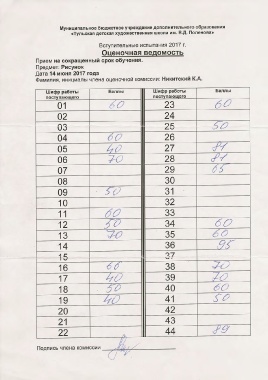 Муниципальное бюджетное учреждение дополнительного образования
«Тульская детская художественная школа им. В.Д. Поленова»
Вступительные испытания 2017 г.
Оценочная ведомость
Прием на сокращенный срок обучения.
Предмет: Рисунок
Дата 14 июня 2017 года
Фамилия, инициалы члена оценочной комиссии: Никитский К.А.
Шифр работы поступающего Баллы Шифр работы поступающего Баллы
01 60 23 60
02 24
03 25 50
04 60 26
05 40 27 81
06 70 28 81
07 29 65
08 30
09 50 31
10 32
11 60 33
12 50 34 60
13 70 35 60
14 36 95
15 37
16 60 38 70
17 40 39 70
18 50 40 60
19 40 41 50
20 42
21 43
22 44 89
Подпись члена комиссии